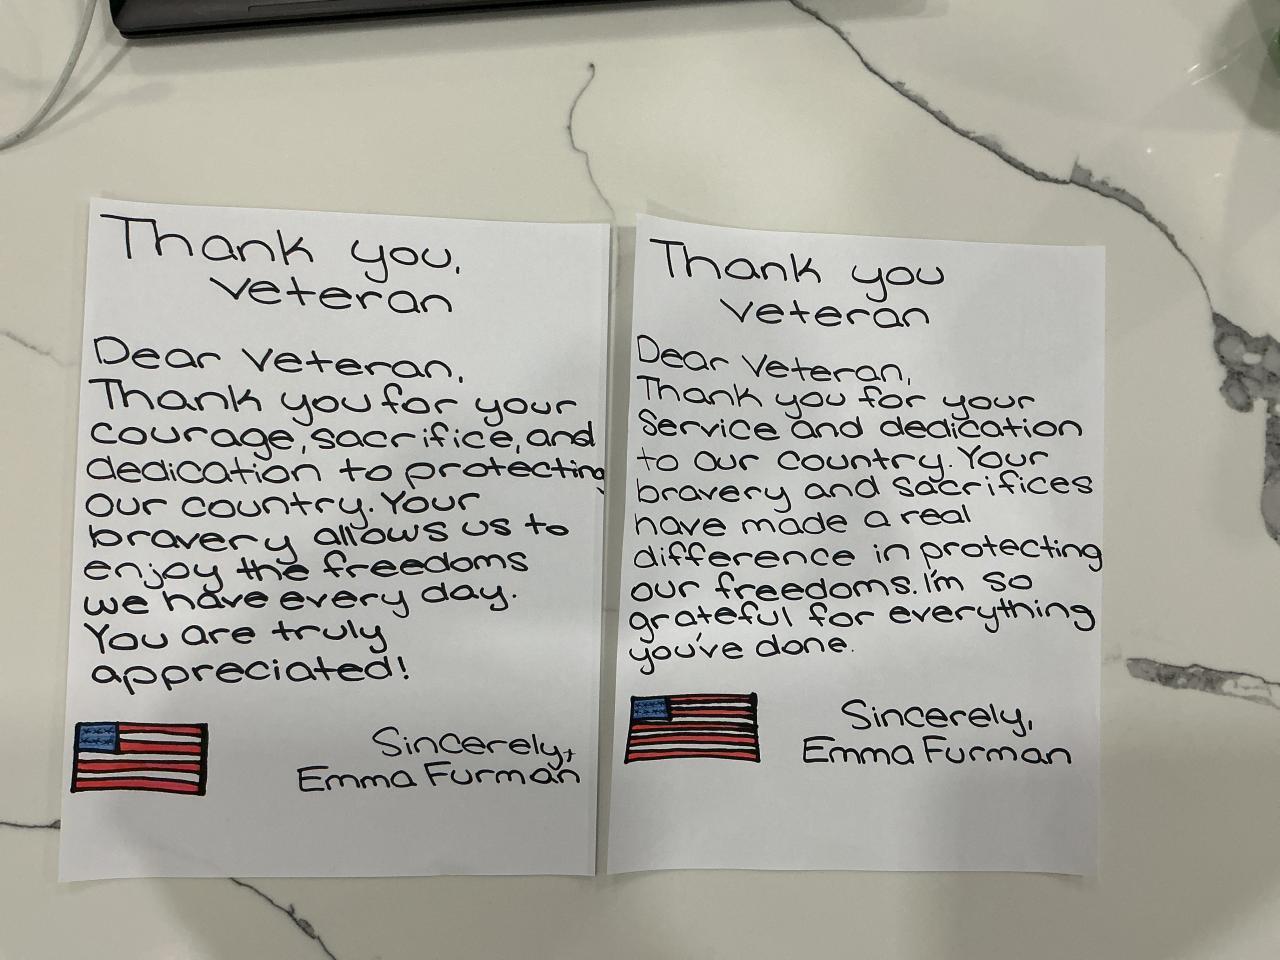 Thank you,
Veteran
Dear Veteran,
Thank you for your
courage, sacrifice, and
dedication to protecting
our country. Your
bravery allows us to
enjoy the freedoms
we have every day.
You are truly
appreciated!
Sincerely,
Emma Furman
Thank you
Veteran
Dear Veteran,
Thank you for your
Service and dedication
to our country. Your
bravery and sacrifices
have made a real
difference in protecting
our freedoms. I'm so
grateful for everything
you've done.
Sincerely,
Emma Furman